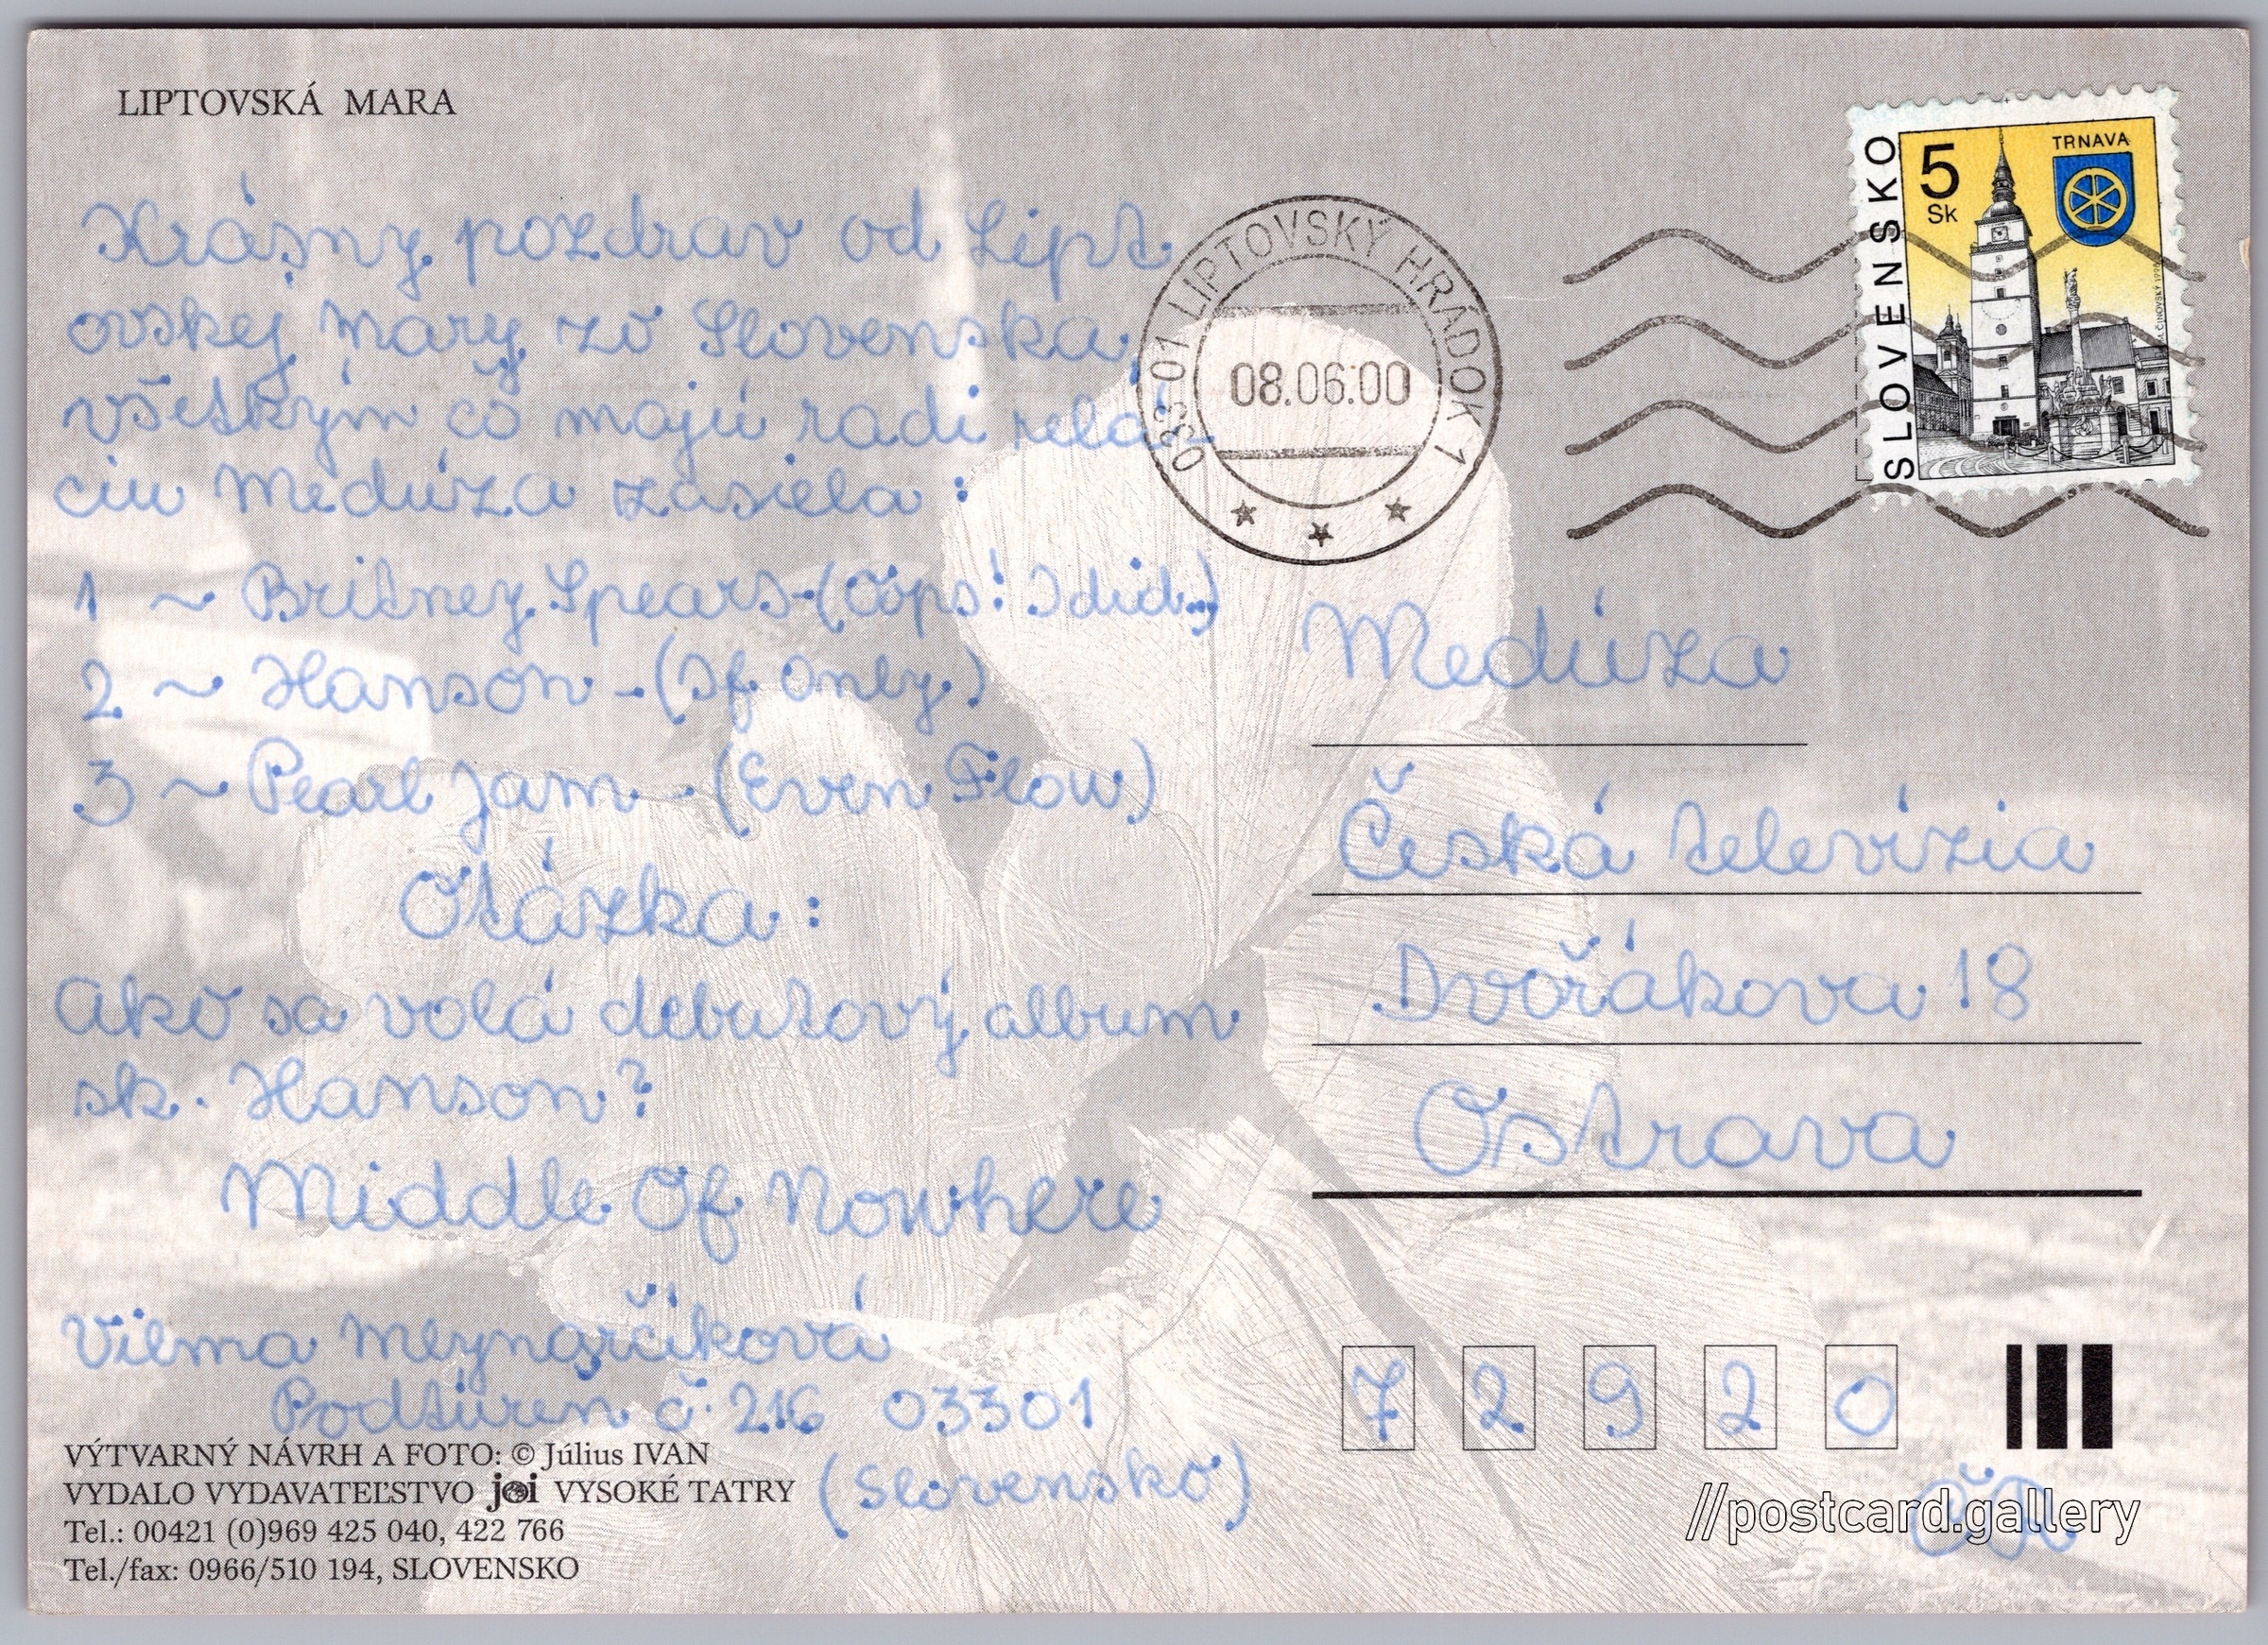 LIPTOVSKÁ MARA
Krásny pozdrav od Lipt
ovskej Mary zo Slovenska,
všetkým čo majú radi relá-
ciu Medúza zasiela:
1 ~ Britney Spears-(Oops! I did..)
2 ~ Hanson -(If Only)
3 ~ Pearl Jam -(Even Flow)
Otázka:
Ako sa volá debutový album
sk. Hanson?
Middle Of Nowhere
Vilma Mlynarčíková
Podtúreň č. 216 03301
(Slovensko)
VÝTVARNÝ NÁVRH A FOTO: © Július IVAN
VYDALO VYDAVATEĽSTVO joi VYSOKÉ TATRY
Tel.: 00421 (0)969 425 040, 422 766
Tel./fax: 0966/510 194, SLOVENSKO
033 01 LIPTOVSKÝ HRÁDOK 1
08.06.00
SLOVENSKO
5
Sk
TRNAVA
Medúza
Česká televízia
Dvořákova 18
Ostrava
7 2 9 2 0
ČR
//postcard.gallery